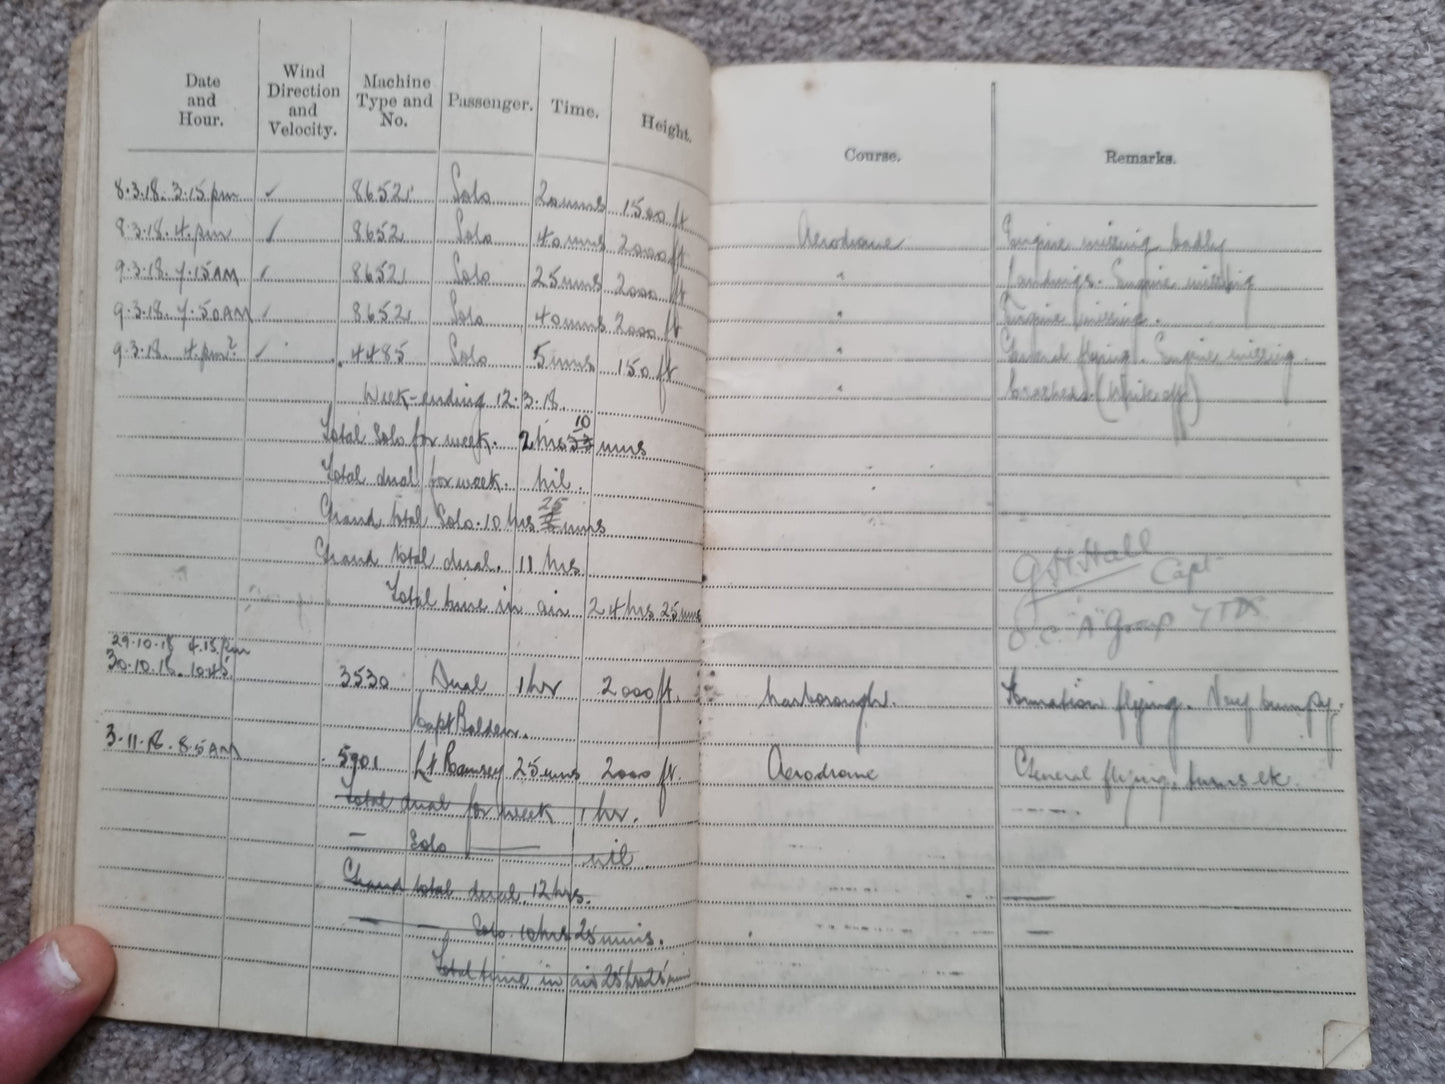 Date and Hour. Wind Direction and Velocity. Machine Type and No. Passenger. Time. Height. Course. Remarks.
8.3.18. 3.15 pm ✓ 8652 Solo 20 mins 1500 ft Aerodrome Engine missing badly
8.3.18. 4. pm ✓ 8652 Solo 40 mins 2000 ft " Landings. Engine missing
9.3.18. 7.15 AM ✓ 8652 Solo 25 mins 2000 ft " Engine missing.
9.3.18. 7.50 AM ✓ 8652 Solo 40 mins 2000 ft " General flying. Engine missing.
9.3.18. 4. pm? ✓ 4485 Solo 5 mins 150 ft " Crashed. (Write off)
Week-ending 12.3.18.
Total Solo for week. 2 hrs 10 mins
Total dual for week. nil.
Grand total Solo. 10 hrs 25 mins
Grand total dual. 11 hrs
Total time in air 24 hrs 25 mins
G H Hall Capt
O.C. "A" Group 7 TDS
29.10.18 4.15. pm
30.10.18. 10.45. 3530 Dual 1 hr 2000 ft. Harborough. Formation flying. Very bumpy.
Capt Balden.
3.11.18. 8.5 AM 5901 Lt Ramsey 25 mins 2000 ft. Aerodrome General flying, turns etc.
Total dual for week 1 hr.
— Solo — nil
Grand total dual. 12 hrs.
— Solo. 10 hrs 25 mins.
Total time in air 25 hrs 25 mins